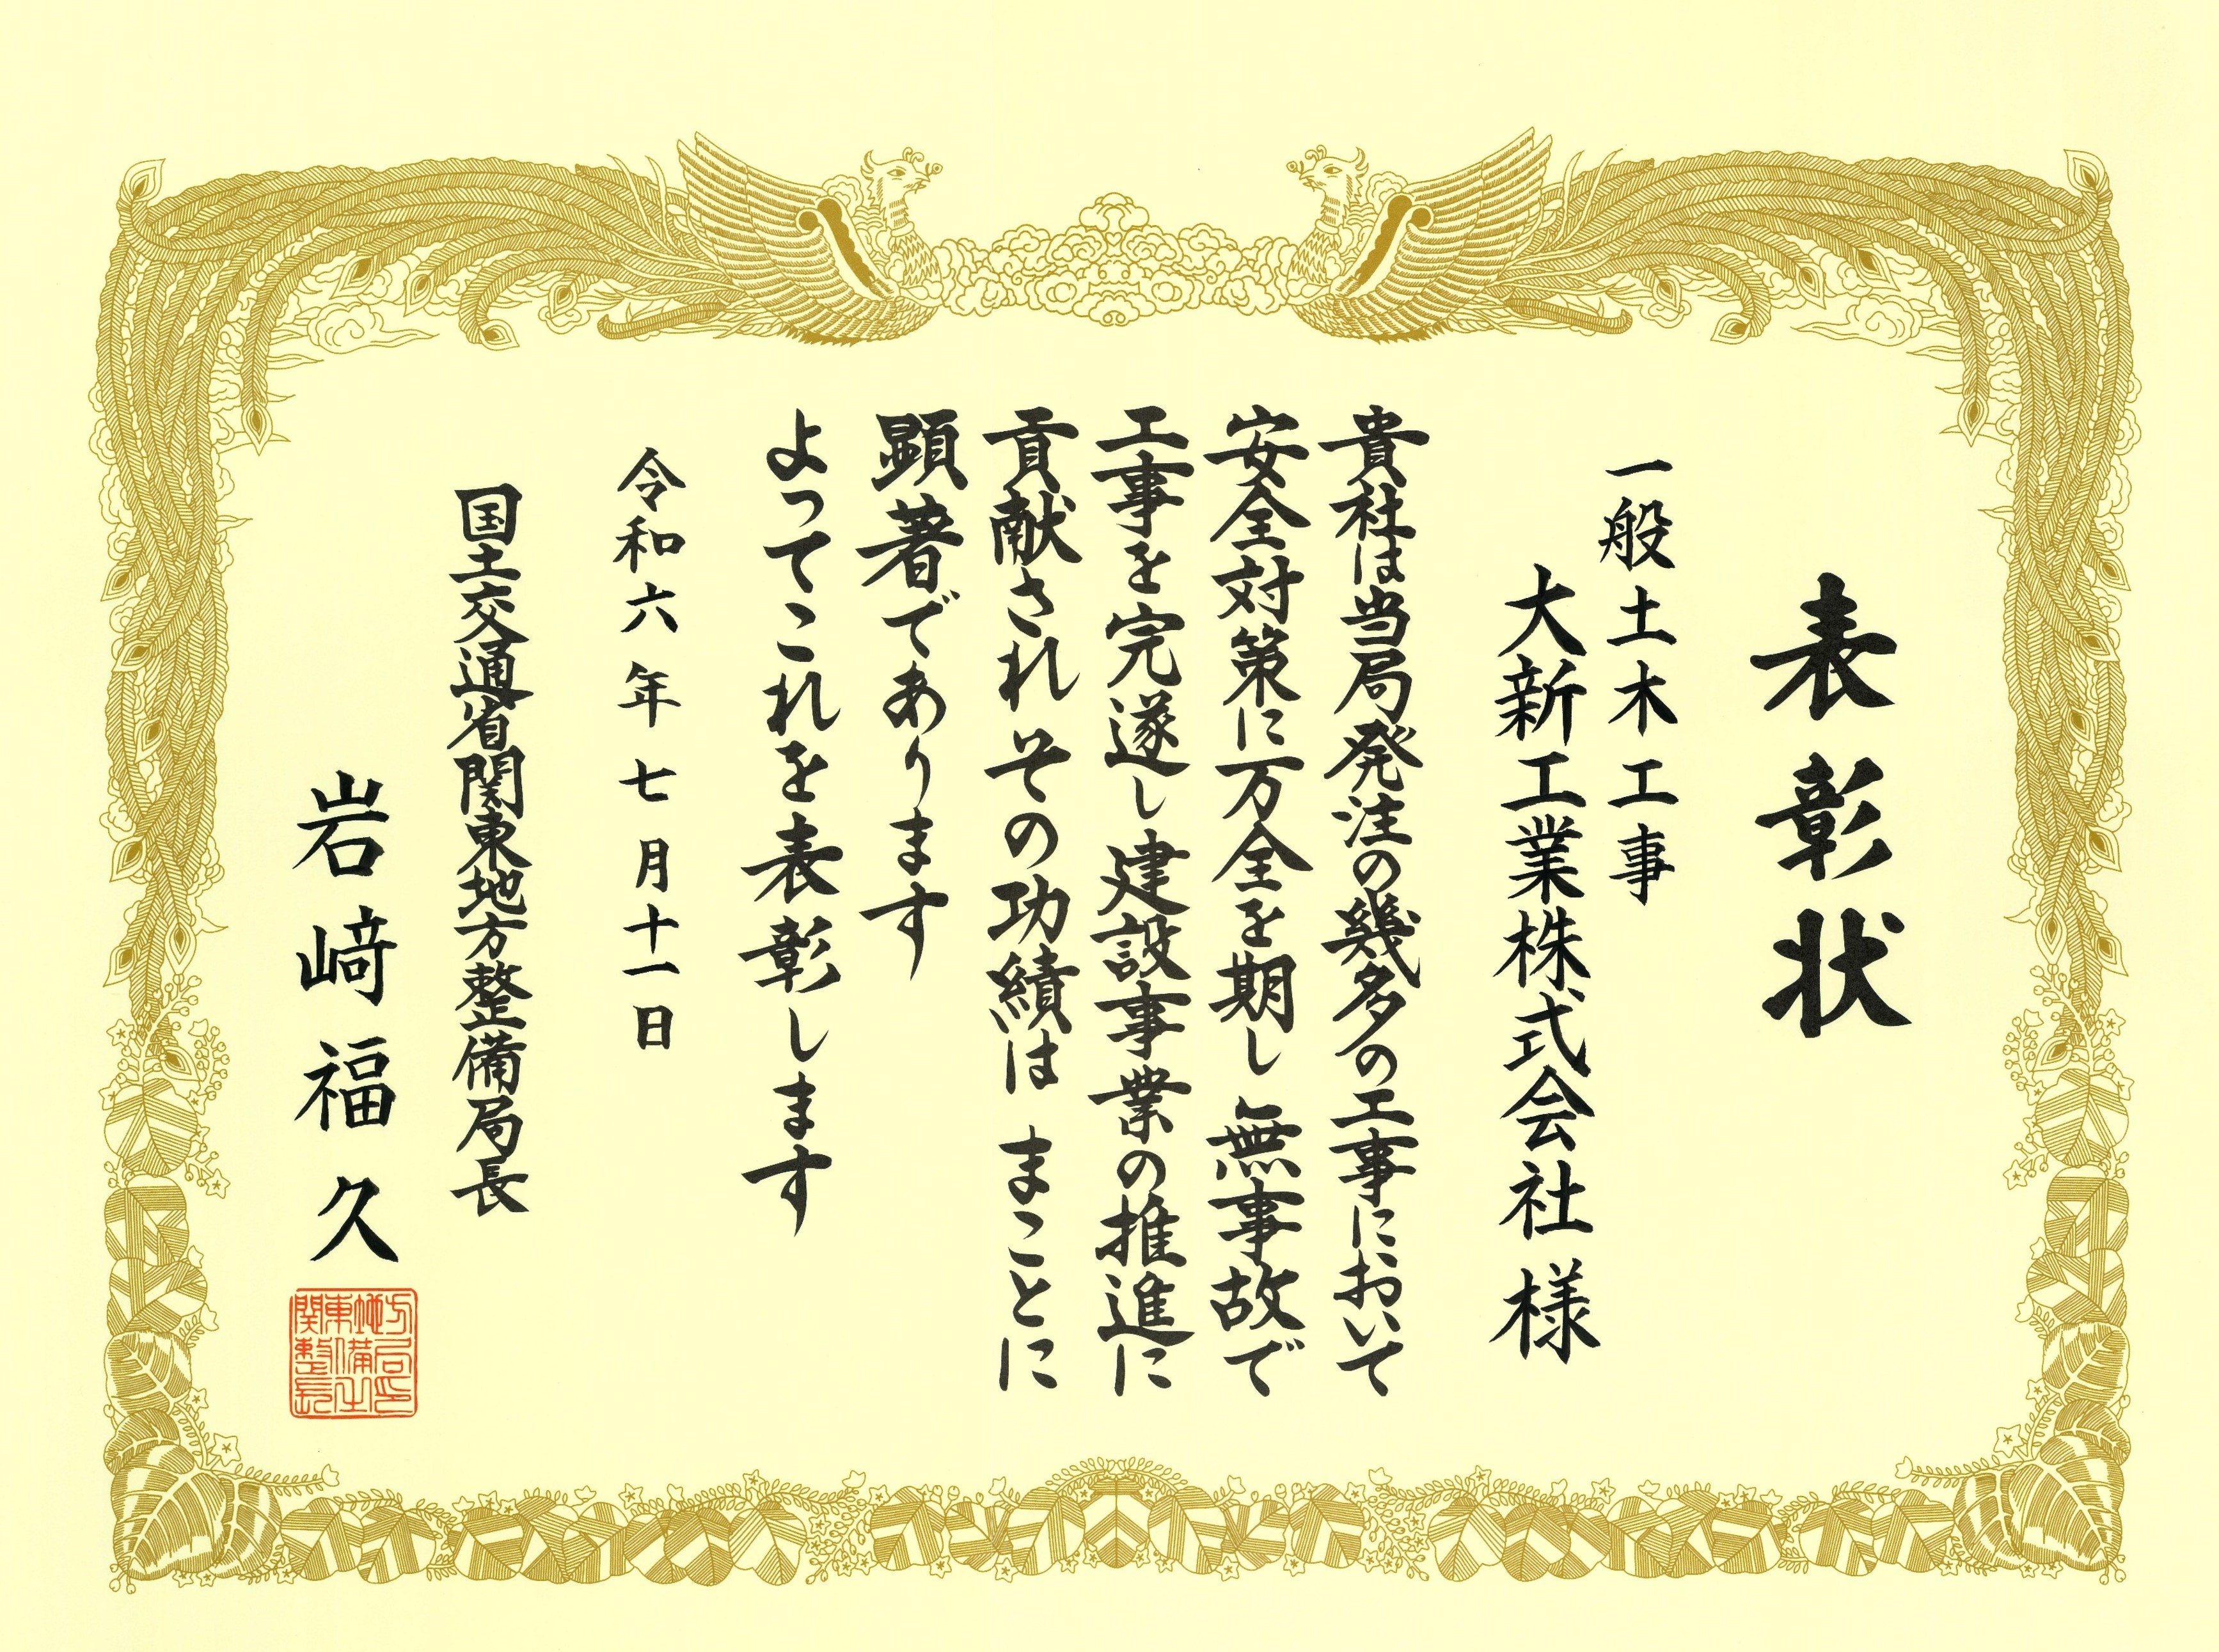 表彰状
一般土木工事
大新工業株式会社 様
貴社は当局発注の幾多の工事において
安全対策に万全を期し 無事故で
工事を完遂し 建設事業の推進に
貢献され その功績は まことに
顕著であります
よってこれを表彰します
令和六年七月十一日
国土交通省関東地方整備局長
岩﨑福久
関東地方
整備局
長之印